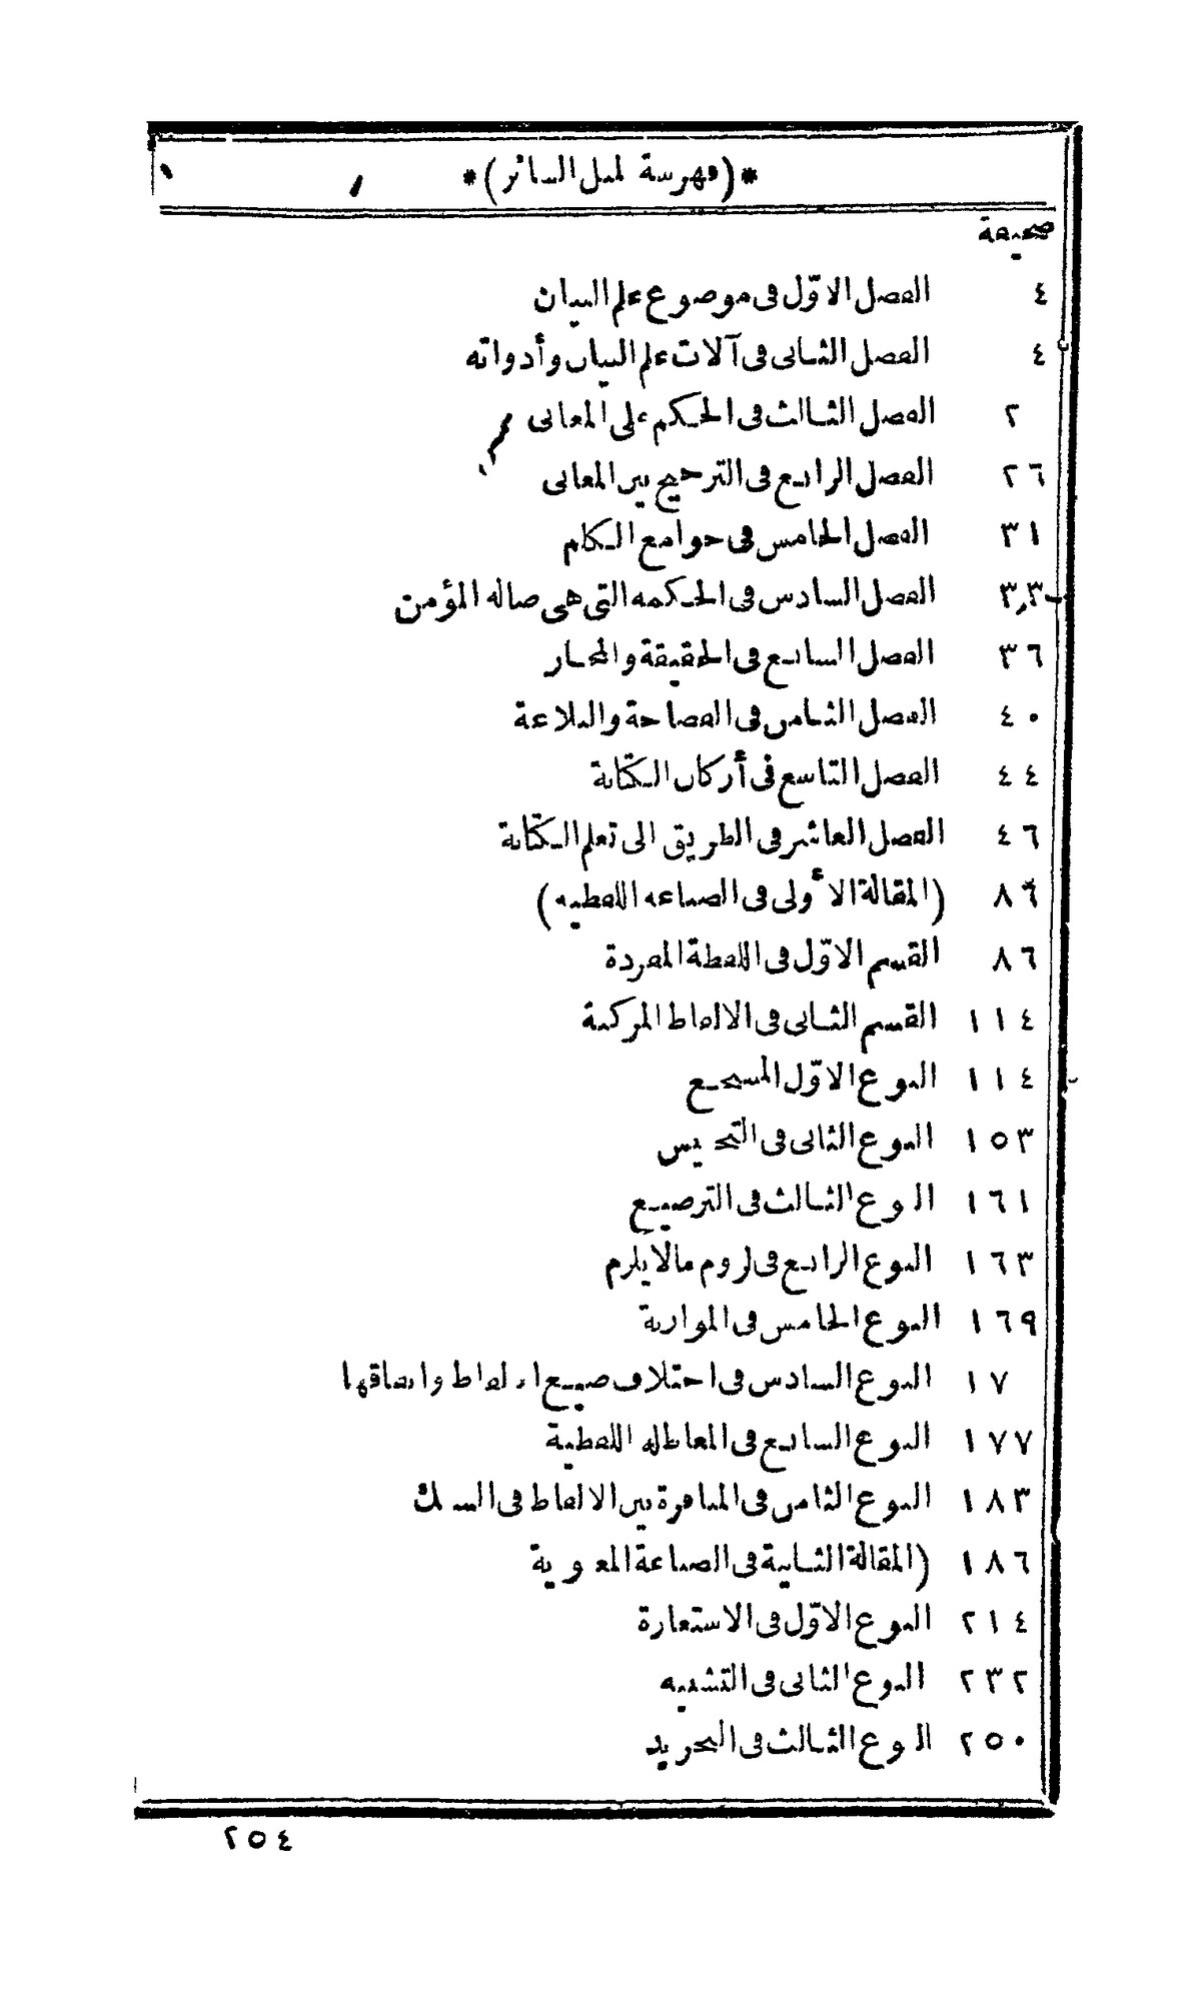 *(فهرسة المثل السائر)*
صحيفة
٤ الفصل الاوّل فى موضوع علم البيان
٤ الفصل الثانى فى آلات علم البيان وأدواته
٢ الفصل الثالث فى الحكم على المعانى
٢٦ الفصل الرابع فى الترجيح بين المعانى
٣١ الفصل الخامس فى جوامع الكلم
٣٣ الفصل السادس فى الحكمة التى هى ضالة المؤمن
٣٦ الفصل السابع فى الحقيقة والمجاز
٤٠ الفصل الثامن فى الفصاحة والبلاغة
٤٤ الفصل التاسع فى أركان الكتابة
٤٦ الفصل العاشر فى الطريق الى تعلم الكتابة
٨٦ (المقالة الأولى فى الصناعة اللفظية)
٨٦ القسم الاوّل فى اللفظة المفردة
١١٤ القسم الثانى فى الالفاظ المركبة
١١٤ النوع الاوّل المسجع
١٥٣ النوع الثانى فى التجنيس
١٦١ النوع الثالث فى الترصيع
١٦٣ النوع الرابع فى لزوم مالايلزم
١٦٩ النوع الخامس فى الموازنة
١٧ النوع السادس فى اختلاف صيغ الالفاظ واتفاقها
١٧٧ النوع السابع فى المعاظلة اللفظية
١٨٣ النوع الثامن فى المنافرة بين الالفاظ فى السبك
١٨٦ (المقالة الثانية فى الصناعة المعنوية
٢١٤ النوع الاوّل فى الاستعارة
٢٣٢ النوع الثانى فى التشبيه
٢٥٠ النوع الثالث فى التجريد
٢٥٤